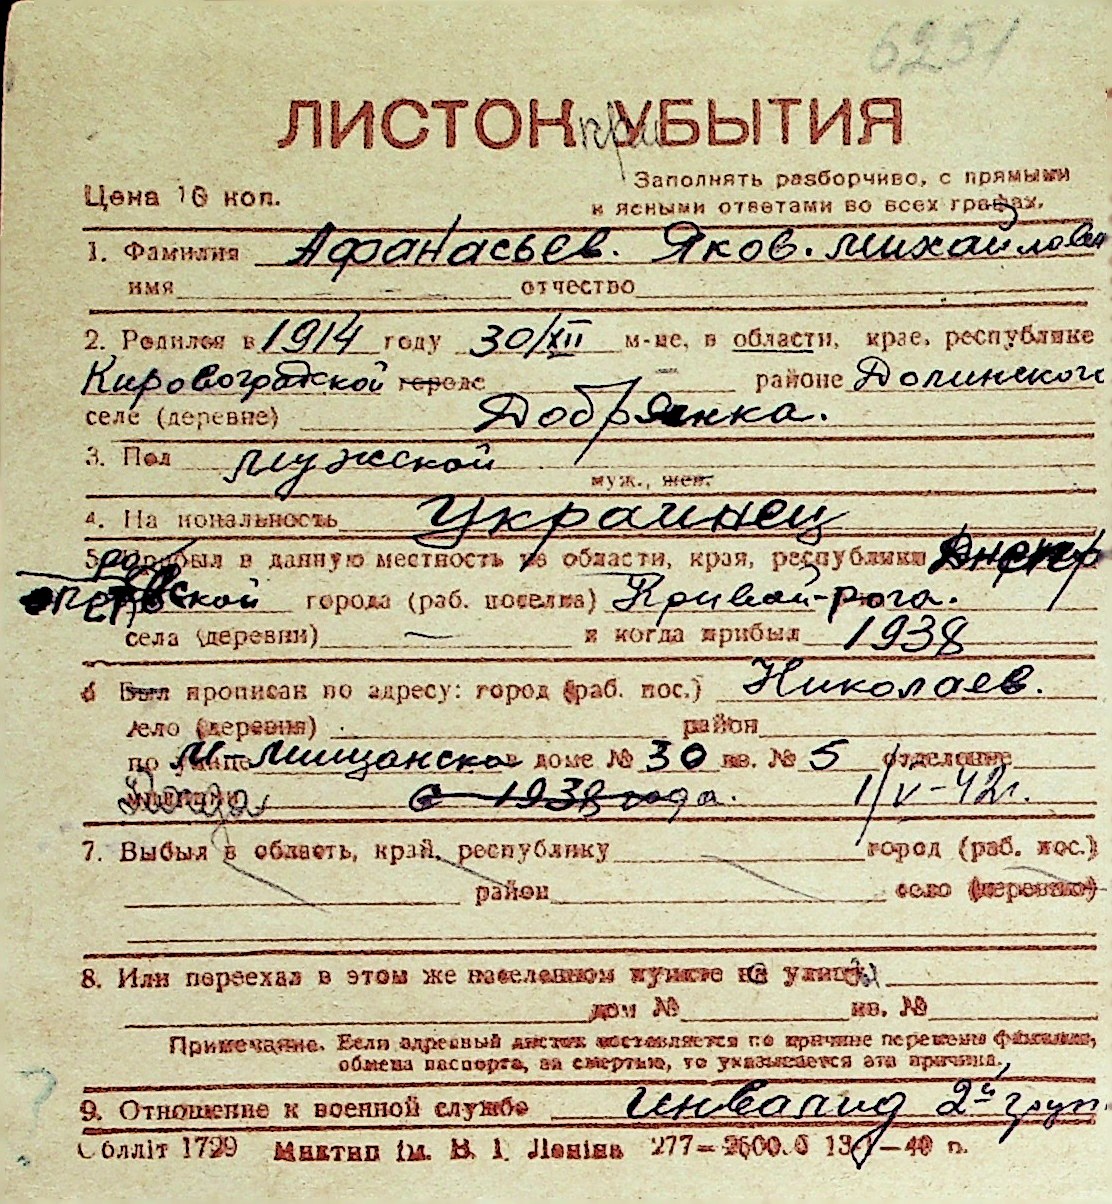 6251
ЛИСТОК при УБЫТИЯ
Цена 10 коп.
Заполнять разборчиво, с прямыми
и ясными ответами во всех графах.
1. Фамилия Афанасьев. Яков. Михайлович
имя отчество
2. Родился в 1914 году 30/XII м-це, в области, крае, республике
Кировоградской городе районе Долинской
селе (деревне) Добрянка.
3. Пол мужской
муж., жен.
4. Национальность Украинец
5. Прибыл в данную местность из области, края, республики Днепр
опетровской города (раб. поселка) Кривой-рога.
села (деревни) — и когда прибыл 1938
6 Был прописан по адресу: город (раб. пос.) Николаев.
село (деревня) район
по улице М-Мищанская в доме № 30 кв. № 5 отделение
милиции с 1938 года. 1/V-42г.
7. Выбыл в область, край, республику город (раб. пос.)
район село (деревню)
8. Или переехал в этом же населенном пункте на улицу
дом № кв. №
Примечание. Если адресный листок составляется по причине перемены фамилии,
обмена паспорта, за смертью, то указывается эта причина.
9. Отношение к военной службе инвалид 2й груп.
Облліт 1729 Миктип ім. В. І. Леніна 277— 13 —40 р.